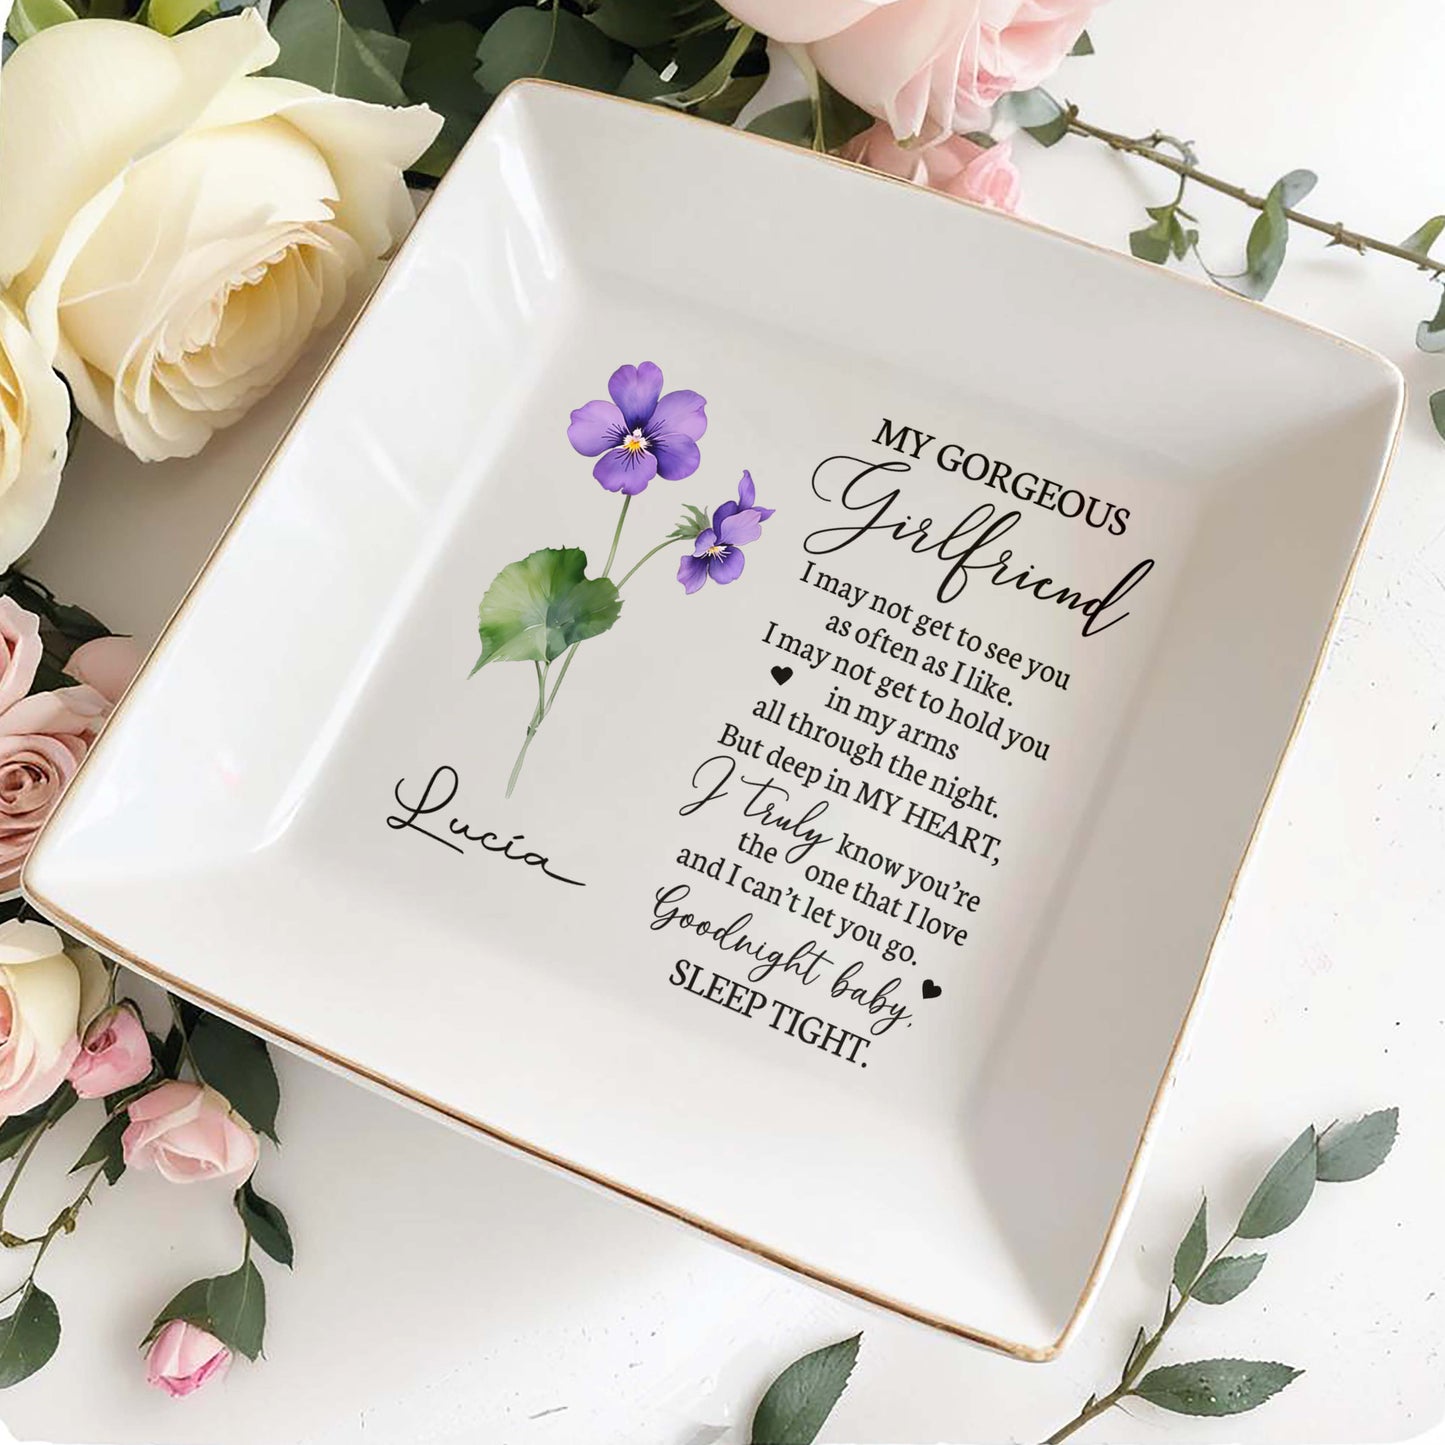 MY GORGEOUS
Girlfriend
I may not get to see you
as often as I like.
I may not get to hold you
in my arms
all through the night.
But deep in MY HEART,
I truly know you're
the one that I love
and I can't let you go.
Goodnight baby,
SLEEP TIGHT.
Lucía